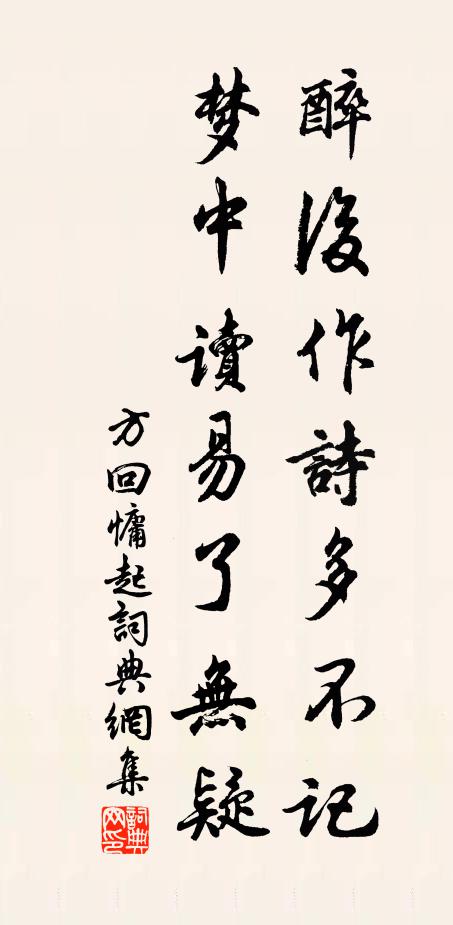 醉後作詩多不記
梦中讀易了無疑
方回慵起詞典網集
詞典網印